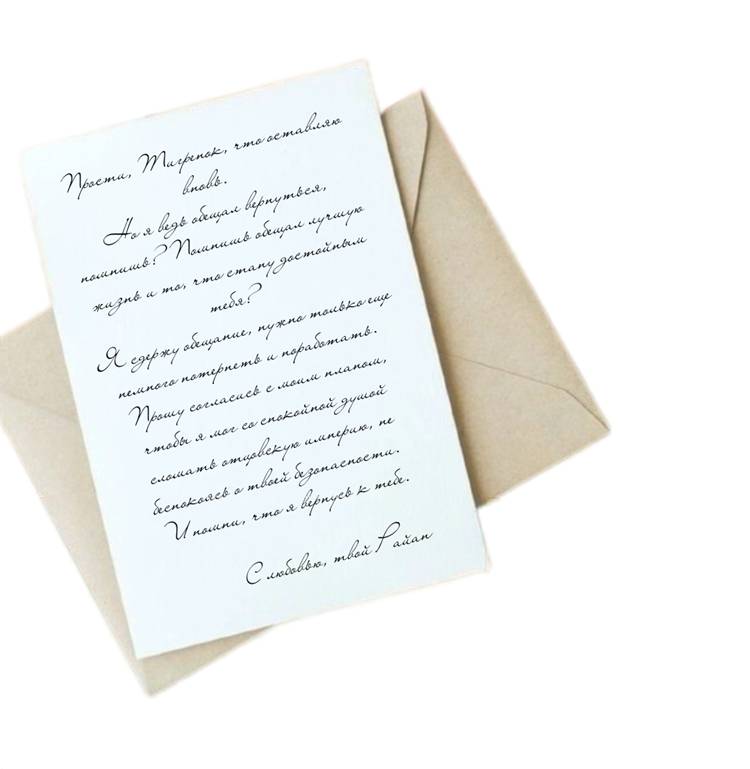 Прости, Тигренок, что оставляю
вновь.
Но я ведь обещал вернуться,
помнишь? Помнишь обещал лучшую
жизнь и то, что стану достойным
тебя?
Я сдержу обещание, нужно только еще
немного потерпеть и поработать.
Прошу согласись с моим планом,
чтобы я мог со спокойной душой
сломать отцовскую империю, не
беспокоясь о твоей безопасности.
И помни, что я вернусь к тебе.
С любовью, твой Райан